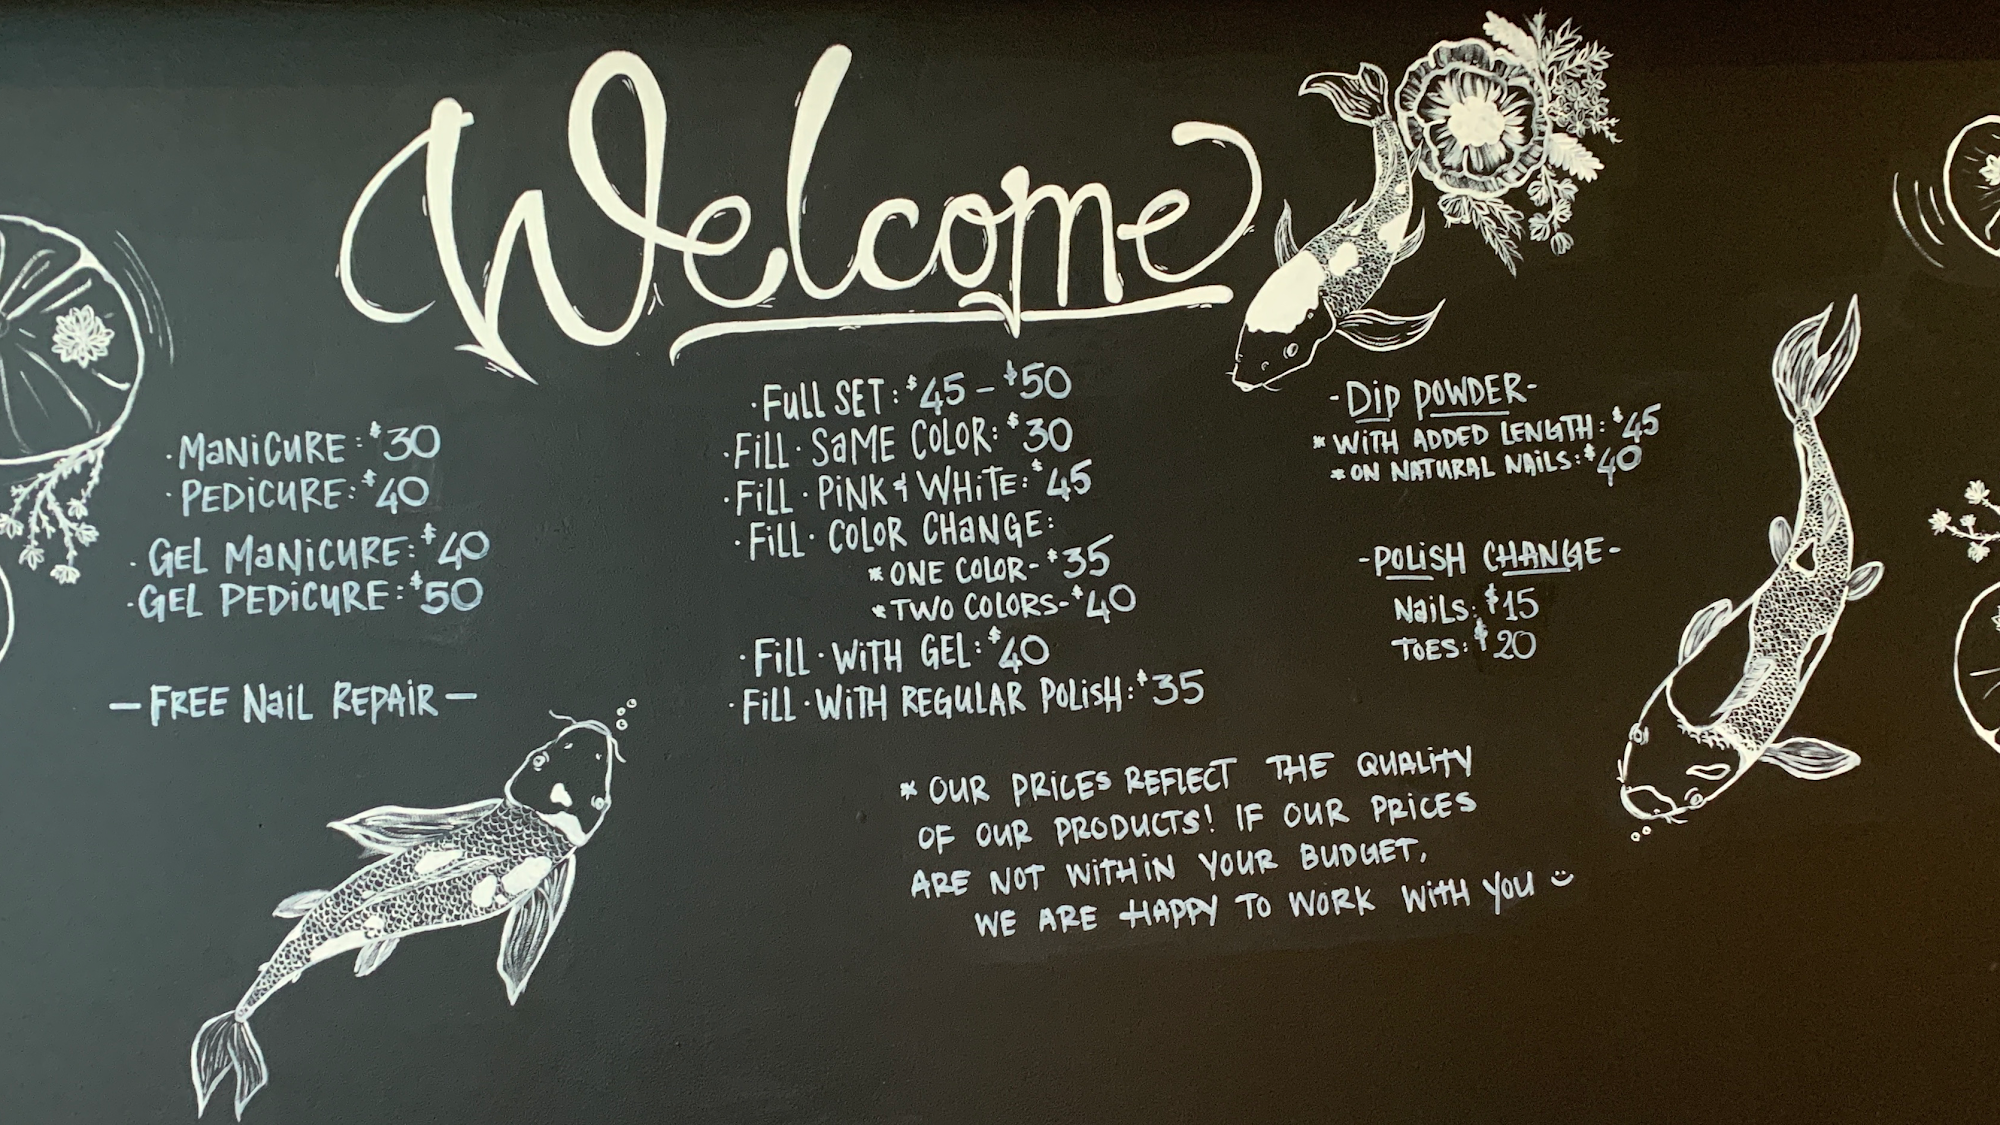 Welcome
· MANiCURE: $30
· PEDiCURE: $40
· GEL MANiCURE: $40
· GEL PEDiCURE: $50
— FREE NaiL REPAiR —
· FULL SET: $45 - $50
· FiLL · SaME COLOR: $30
· FiLL · PiNK & WHiTE: $45
· FiLL · COLOR CHANGE:
* ONE COLOR - $35
* TWO COLORS - $40
· FiLL · WiTH GEL: $40
· FiLL · WiTH REGULAR POLiSH: $35
- DiP POWDER -
* WiTH ADDED LENGTH: $45
* ON NATURAL NAiLS: $40
- POLiSH CHANGE -
NaiLS: $15
TOES: $20
* OUR PRiCES REFLECT THE QUALiTY
OF OUR PRODUCTS! IF OUR PRiCES
ARE NOT WiTHiN YOUR BUDGET,
WE ARE HAPPY TO WORK WiTH YOU ☺